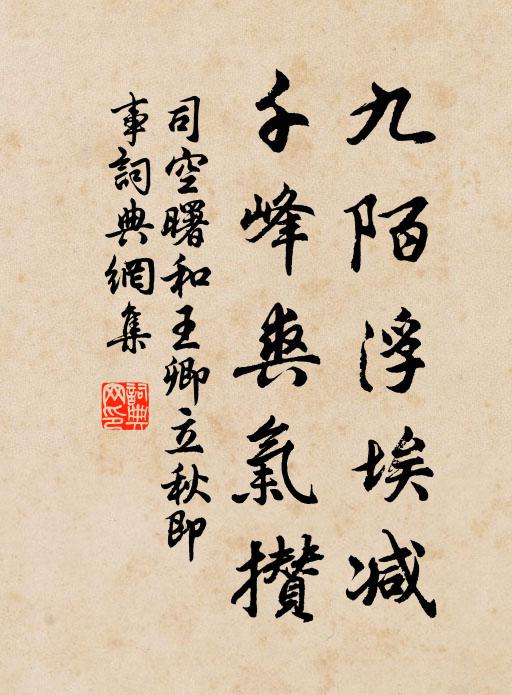 九陌浮埃减
千峰爽氣攢
司空曙和王卿立秋即
事詞典網集
詞典
网印